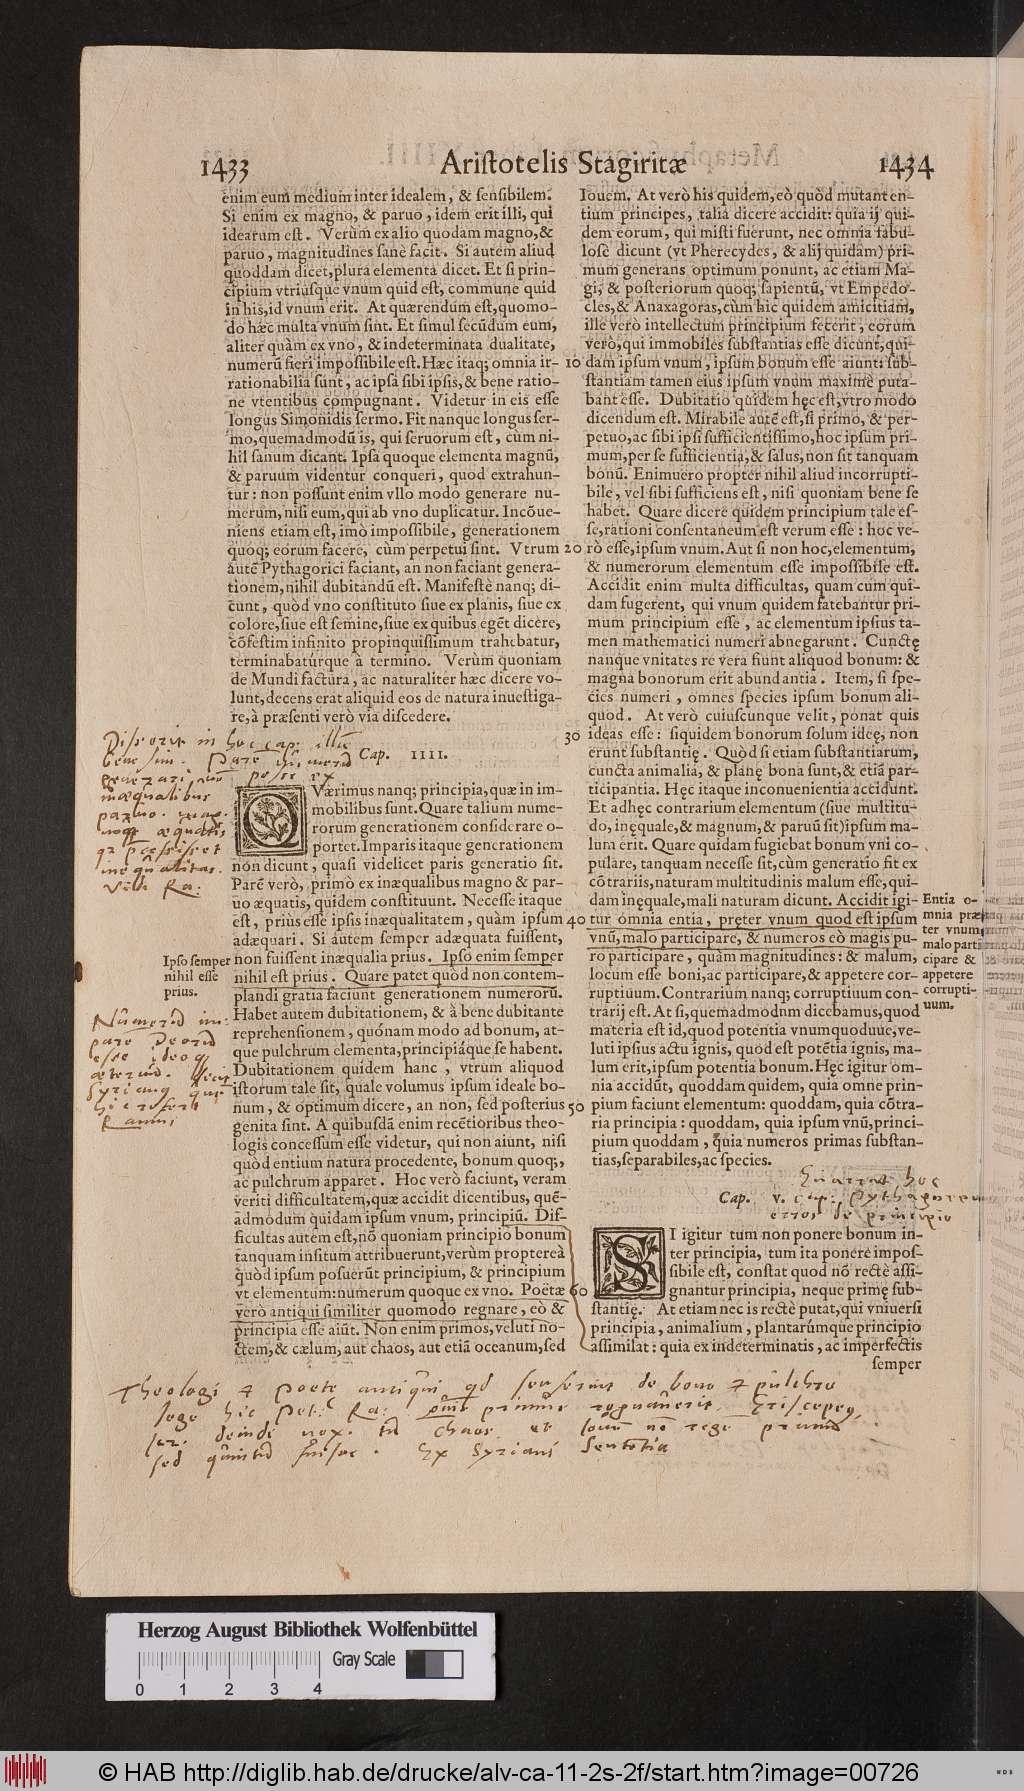 1433 Aristotelis Stagiritæ 1434
enim eum medium inter idealem, & sensibilem.
Si enim ex magno, & paruo, idem erit illi, qui
idearum est. Verùm ex alio quodam magno, &
paruo, magnitudines sanè facit. Si autem aliud
quoddam dicet, plura elementa dicet. Et si prin-
cipium vtriusque vnum quid est, commune quid
in his, id vnum erit. At quærendum est, quomo-
do hæc multa vnum sint. Et simul secũdum eum,
aliter quàm ex vno, & indeterminata dualitate,
numerũ fieri impossibile est. Hæc itaq; omnia ir-
rationabilia sunt, ac ipsa sibi ipsis, & bene ratio-
ne vtentibus compugnant. Videtur in eis esse
longus Simonidis sermo. Fit nanque longus ser-
mo, quemadmodũ is, qui seruorum est, cùm ni-
hil sanum dicant. Ipsa quoque elementa magnũ,
& paruum videntur conqueri, quod extrahun-
tur: non possunt enim vllo modo generare nu-
merum, nisi eum, qui ab vno duplicatur. Incõue-
niens etiam est, imò impossibile, generationem
quoq; eorum facere, cùm perpetui sint. Vtrum
autẽ Pythagorici faciant, an non faciant genera-
tionem, nihil dubitandũ est. Manifestè nanq; di-
cunt, quòd vno constituto siue ex planis, siue ex
colore, siue est semine, siue ex quibus egẽt dicere,
cõfestim infinito propinquissimum trahebatur,
terminabatúrque à termino. Verùm quoniam
de Mundi factura, ac naturaliter hæc dicere vo-
lunt, decens erat aliquid eos de natura inuestiga-
re, à præsenti verò via discedere.
Cap. IIII.
QVærimus nanq; principia, quæ in im-
mobilibus sunt. Quare talium nume-
rorum generationem considerare o-
portet. Imparis itaque generationem
non dicunt, quasi videlicet paris generatio sit.
Parẽ verò, primò ex inæqualibus magno & par-
uo æquatis, quidem constituunt. Necesse itaque
est, priùs esse ipsis inæqualitatem, quàm ipsum
adæquari. Si autem semper adæquata fuissent,
non fuissent inæqualia prius. Ipso enim semper
nihil est prius. Quare patet quòd non contem-
plandi gratia faciunt generationem numerorũ.
Habet autem dubitationem, & à bene dubitante
reprehensionem, quónam modo ad bonum, at-
que pulchrum elementa, principiáque se habent.
Dubitationem quidem hanc, vtrum aliquod
istorum tale sit, quale volumus ipsum ideale bo-
num, & optimum dicere, an non, sed posterius
genita sint. A quibusdã enim recẽtioribus theo-
logis concessum esse videtur, qui non aiunt, nisi
quòd entium natura procedente, bonum quoq;,
ac pulchrum apparet. Hoc verò faciunt, veram
veriti difficultatem, quæ accidit dicentibus, quẽ-
admodum quidam ipsum vnum, principiũ. Dif-
ficultas autem est, nõ quoniam principio bonum
tanquam insitum attribuerunt, verùm proptereà
quòd ipsum posuerũt principium, & principium
vt elementum: numerum quoque ex vno. Poëtæ
verò antiqui similiter quomodo regnare, eò &
principia esse aiũt. Non enim primos, veluti no-
ctem, & cælum, aut chaos, aut etiã oceanum, sed
Ipso semper
nihil esse
prius.
10
20
30
40
50
60
Iouem. At verò his quidem, eò quòd mutant en-
tium principes, talia dicere accidit: quia ij qui-
dem eorum, qui misti fuerunt, nec omnia fabu-
losè dicunt (vt Pherecydes, & alij quidam) pri-
mum generans optimum ponunt, ac etiam Ma-
gi, & posteriorum quoq; sapientũ, vt Empedo-
cles, & Anaxagoras, cùm hic quidem amicitiam,
ille verò intellectum principium fecerit, eorum
verò, qui immobiles substantias esse dicunt, qui-
dam ipsum vnum, ipsum bonum esse aiunt: sub-
stantiam tamen eius ipsum vnum maximè puta-
bant esse. Dubitatio quidem hęc est, vtro modo
dicendum est. Mirabile autẽ est, si primo, & per-
petuo, ac sibi ipsi sufficientissimo, hoc ipsum pri-
mum, per se sufficientia, & salus, non sit tanquam
bonũ. Enimuero propter nihil aliud incorrupti-
bile, vel sibi sufficiens est, nisi quoniam bene se
habet. Quare dicere quidem principium tale es-
se, rationi consentaneum est verum esse: hoc ve-
rò esse, ipsum vnum. Aut si non hoc, elementum,
& numerorum elementum esse impossibile est.
Accidit enim multa difficultas, quam cum qui-
dam fugerent, qui vnum quidem fatebantur pri-
mum principium esse, ac elementum ipsius ta-
men mathematici numeri abnegarunt. Cunctę
nanque vnitates re vera fiunt aliquod bonum: &
magna bonorum erit abundantia. Item, si spe-
cies numeri, omnes species ipsum bonum ali-
quod. At verò cuiuscunque velit, ponat quis
ideas esse: siquidem bonorum solum ideę, non
erunt substantię. Quòd si etiam substantiarum,
cuncta animalia, & planę bona sunt, & etiã par-
ticipantia. Hęc itaque inconuenientia accidunt.
Et adhęc contrarium elementum (siue multitu-
do, inęquale, & magnum, & paruũ sit) ipsum ma-
lum erit. Quare quidam fugiebat bonum vni co-
pulare, tanquam necesse sit, cùm generatio fit ex
cõtrariis, naturam multitudinis malum esse, qui-
dam inęquale, mali naturam dicunt. Accidit igi-
tur omnia entia, pręter vnum quod est ipsum
vnũ, malo participare, & numeros eò magis pu-
ro participare, quàm magnitudines: & malum,
locum esse boni, ac participare, & appetere cor-
ruptiuum. Contrarium nanq; corruptiuum con-
trarij est. At si, quemadmodnm dicebamus, quod
materia est id, quod potentia vnumquoduue, ve-
luti ipsius actu ignis, quod est potẽtia ignis, ma-
lum erit, ipsum potentia bonum. Hęc igitur om-
nia accidũt, quoddam quidem, quia omne prin-
pium faciunt elementum: quoddam, quia cõtra-
ria principia: quoddam, quia ipsum vnũ, princi-
pium quoddam, quia numeros primas substan-
tias, separabiles, ac species.
Cap. V.
SI igitur tum non ponere bonum in-
ter principia, tum ita ponere impos-
sibile est, constat quod nõ rectè assi-
gnantur principia, neque primę sub-
stantię. At etiam nec is rectè putat, qui vniuersi
principia, animalium, plantarúmque principio
assimilat: quia ex indeterminatis, ac imperfectis
semper
Entia o-
mnia præ
ter vnum
malo parti
cipare &
appetere
corrupti-
uum.
Theologi & poete antiqui qd senserint de bono & pulchro
Herzog August Bibliothek Wolfenbüttel
Gray Scale
0 1 2 3 4
© HAB http://diglib.hab.de/drucke/alv-ca-11-2s-2f/start.htm?image=00726